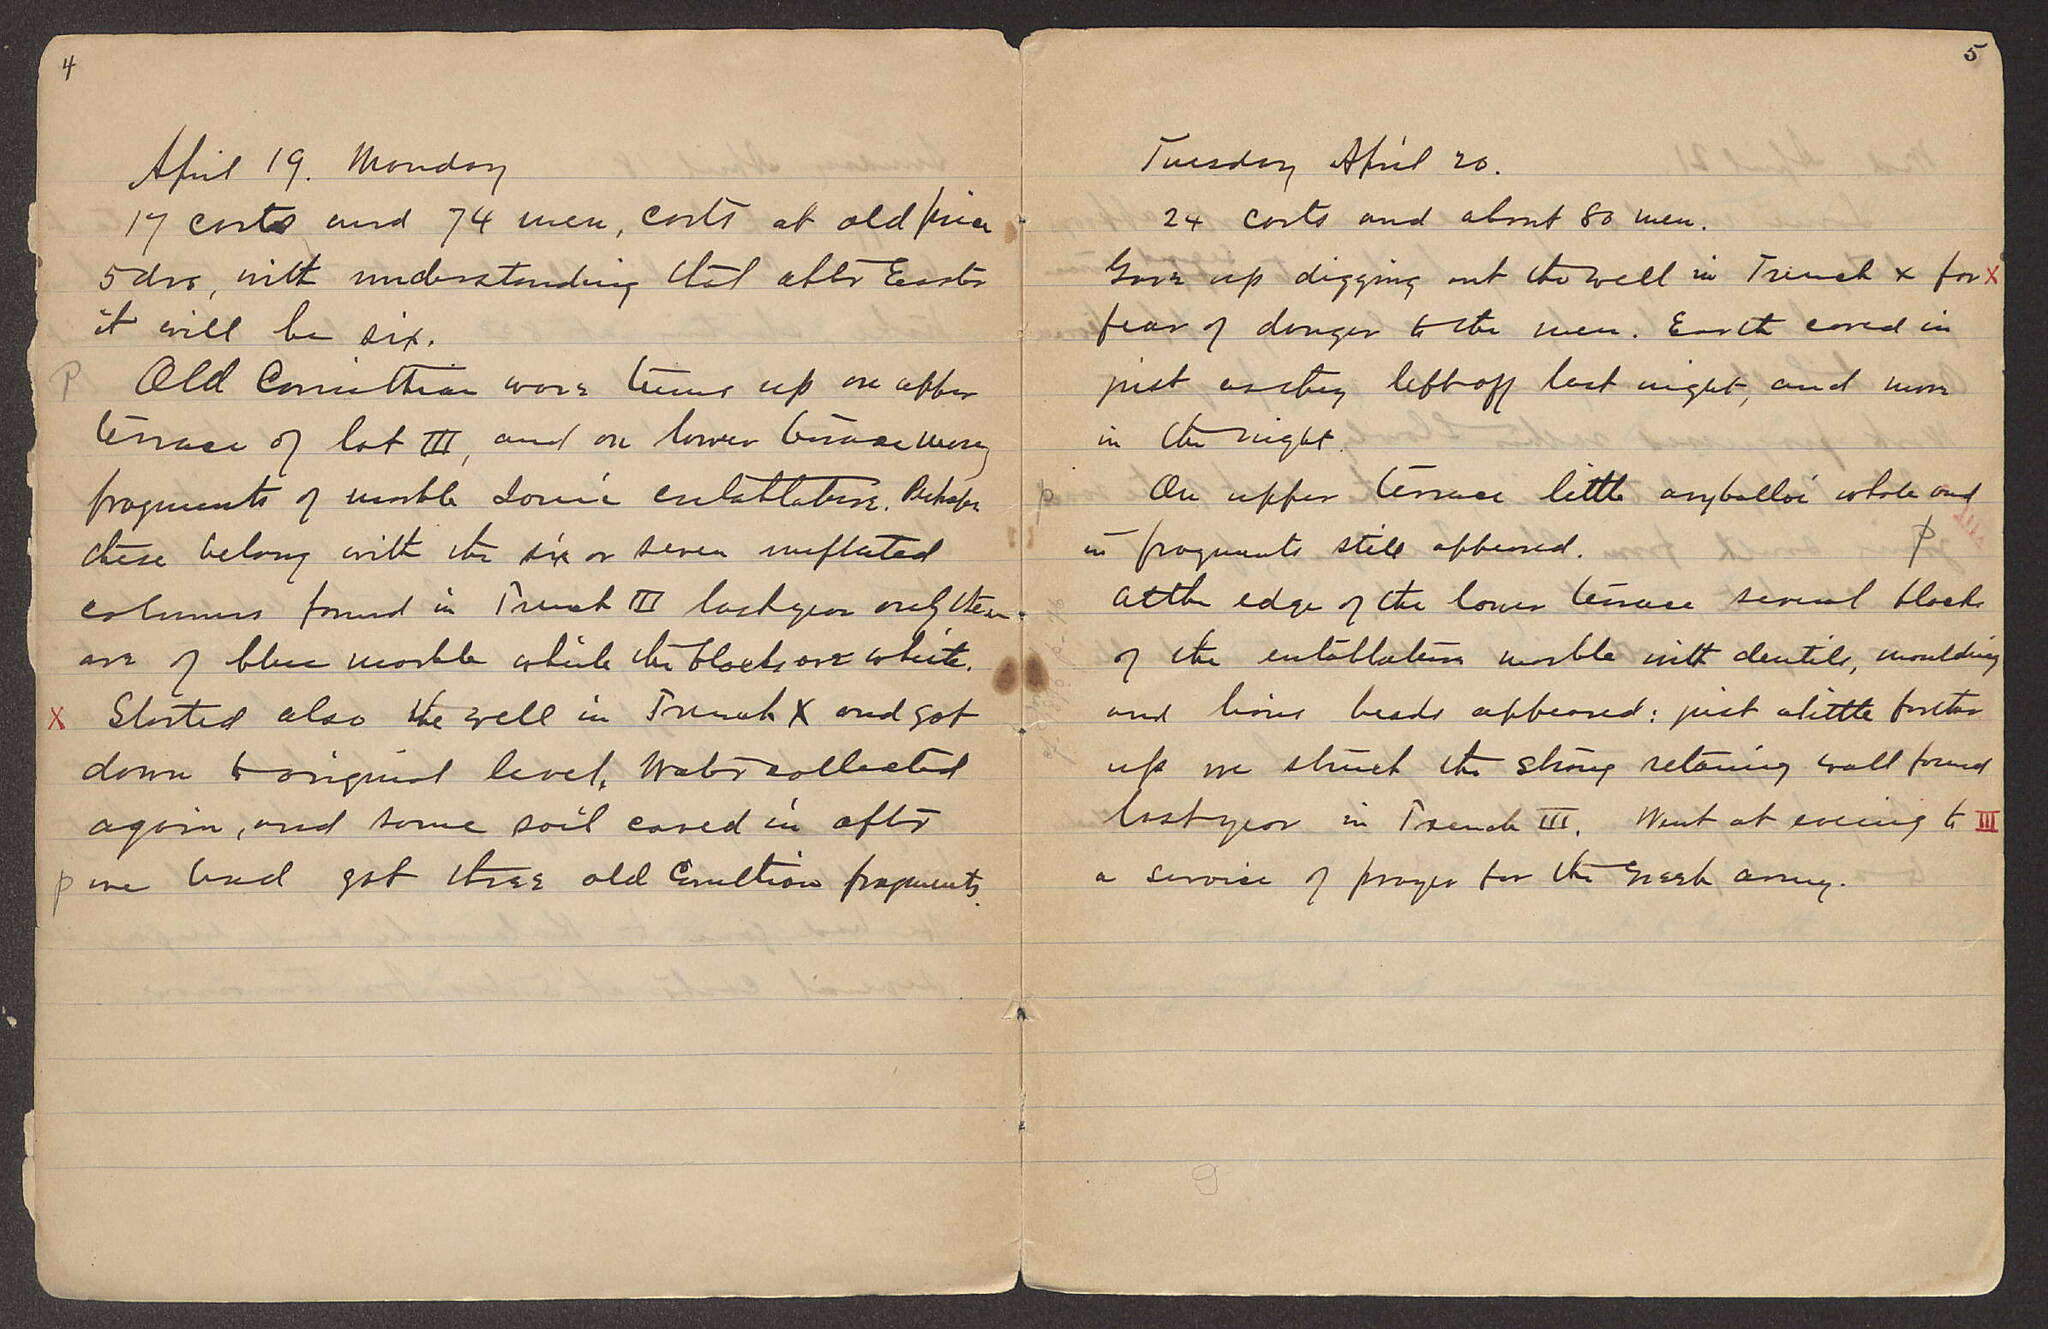 4
April 19. Monday
17 carts and 74 men, carts at old price
5 drs, with understanding that after Easter
it will be six.
P Old Corinthian ware turns up on upper
terrace of lot III, and on lower terrace many
fragments of marble Ionic entablature. Perhaps
these belong with the six or seven unfluted
columns found in Trench III last year only these
are of blue marble while the blocks are white.
X Started also the well in Trench X and got
down to original level. Water collected
again, and some soil caved in after
p we had got three old Corinthian fragments.
5
Tuesday April 20.
24 carts and about 80 men.
Gave up digging out the well in Trench X for X
fear of danger to the men. Earth caved in
just as they left off last night, and more
in the night.
p On upper terrace little aryballoi whole and
in fragments still appeared. p
At the edge of the lower terrace several blocks
of the entablature marble with dentils, moulding
and lions heads appeared: just a little farther
up we struck the strong retaining wall found
last year in Trench III. Went at evening to III
a service of prayer for the Greek army.
9